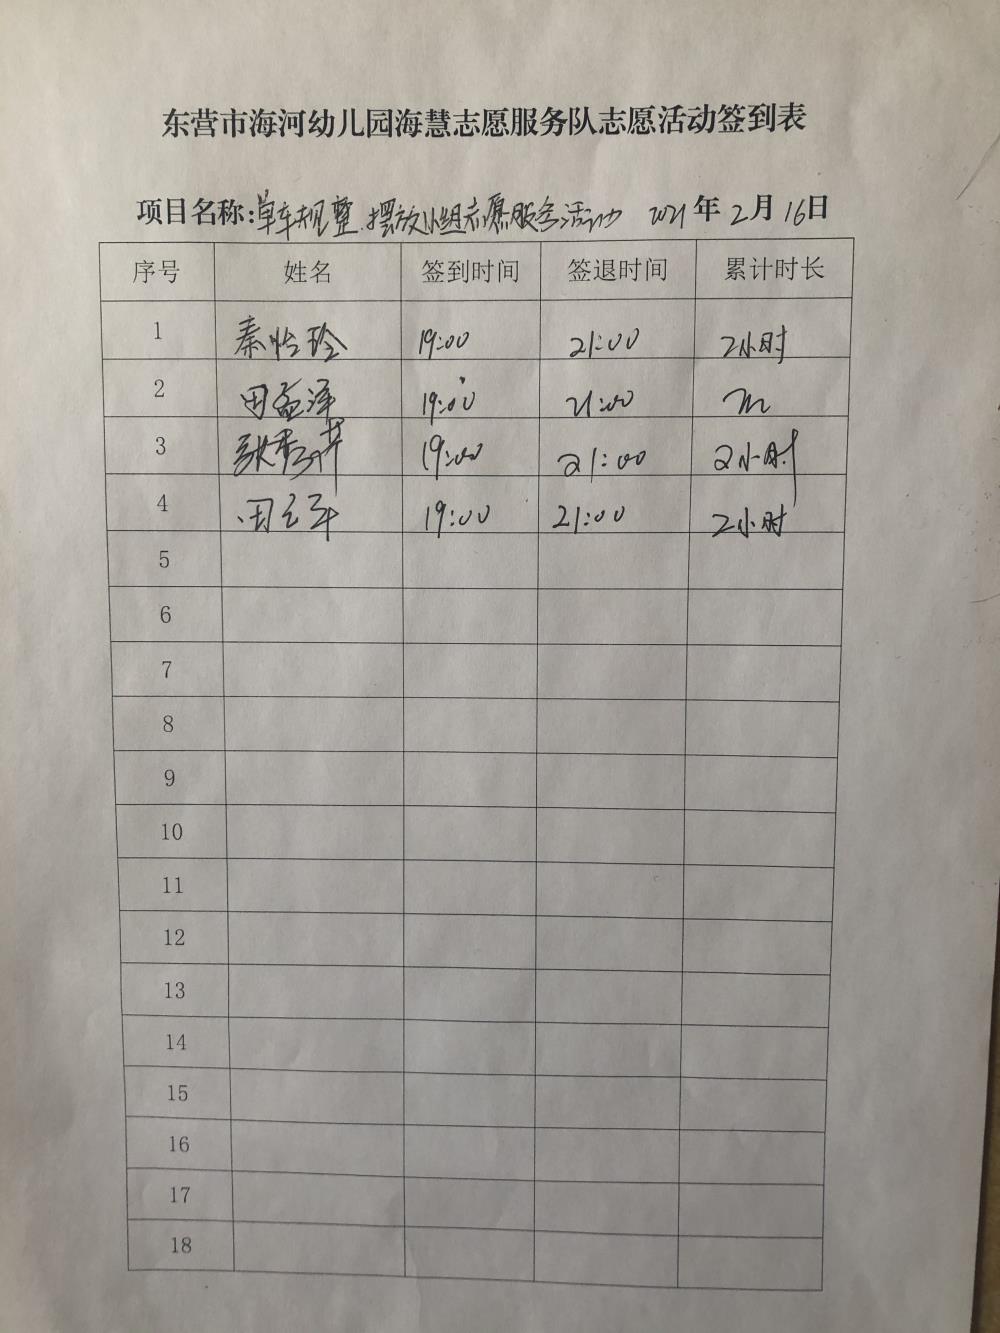 东营市海河幼儿园海慧志愿服务队志愿活动签到表
项目名称:单车规整.摆放小组志愿服务活动 2021年2月16日
序号 姓名 签到时间 签退时间 累计时长
1 秦怡玲 19:00 21:00 2小时
2 田孟泽 19:00 21:00
3 张秀萍 19:00 21:00 2小时
4 田 19:00 21:00 2小时
5
6
7
8
9
10
11
12
13
14
15
16
17
18